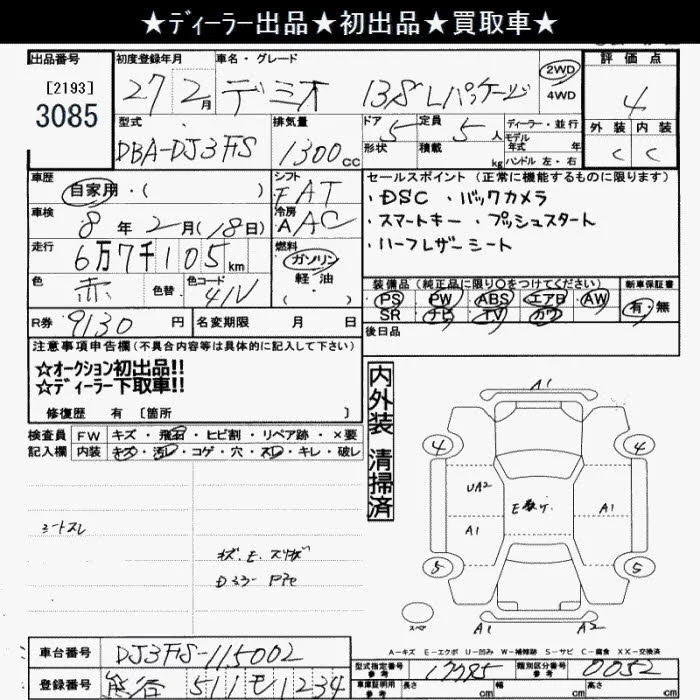 ★ディーラー出品★初出品★買取車★
出品番号
[2193]
3085
初度登録年月
27年2月
車名・グレード
デミオ 13S Lパッケージ
2WD
4WD
評価点
4
外装 内装
C C
型式
DBA-DJ3FS
排気量
1300cc
ドア 5
形状
定員 5人
積載 kg
ディーラー・並行
モデル年式 年
ハンドル 左・右
車歴
自家用・( )
シフト
FAT
セールスポイント(正常に機能するものに限ります)
・DSC ・バックカメラ
・スマートキー ・プッシュスタート
・ハーフレザーシート
車検
8年2月(18日)
冷房
AAC
走行
6万7千105km
燃料
ガソリン
軽油
( )
色
赤
色替
色コード
41V
装備品(純正品に限り○をつけてください)
PS PW ABS エアB AW
SR ナビ TV カワ
新車保証書
有・無
R券 9130円
名変期限 月 日
後日品
注意事項申告欄(不具合内容等は具体的に記入して下さい)
☆オークション初出品!!
☆ディーラー下取車!!
修復歴 有 [箇所 ]
内外装清掃済
検査員
記入欄
FW キズ・飛石・ヒビ割・リペア跡・×要
内装 キズ・汚レ・コゲ・穴・スレ・キレ・破レ
シートスレ
キズ.E.スリキズ
Dミラー
A1
4
4
UA2
A1
A1
5
5
A1
A2
スペア
A-キズ E-エクボ U-凹み W-補修跡 S-サビ C-腐食 XX-交換済
車台番号
DJ3FS-115002
登録番号
熊谷 511 モ 1234
型式指定番号
参考
17785
類別区分番号
参考
0052
車庫証明用
参考
長さ cm
幅 cm
高さ cm